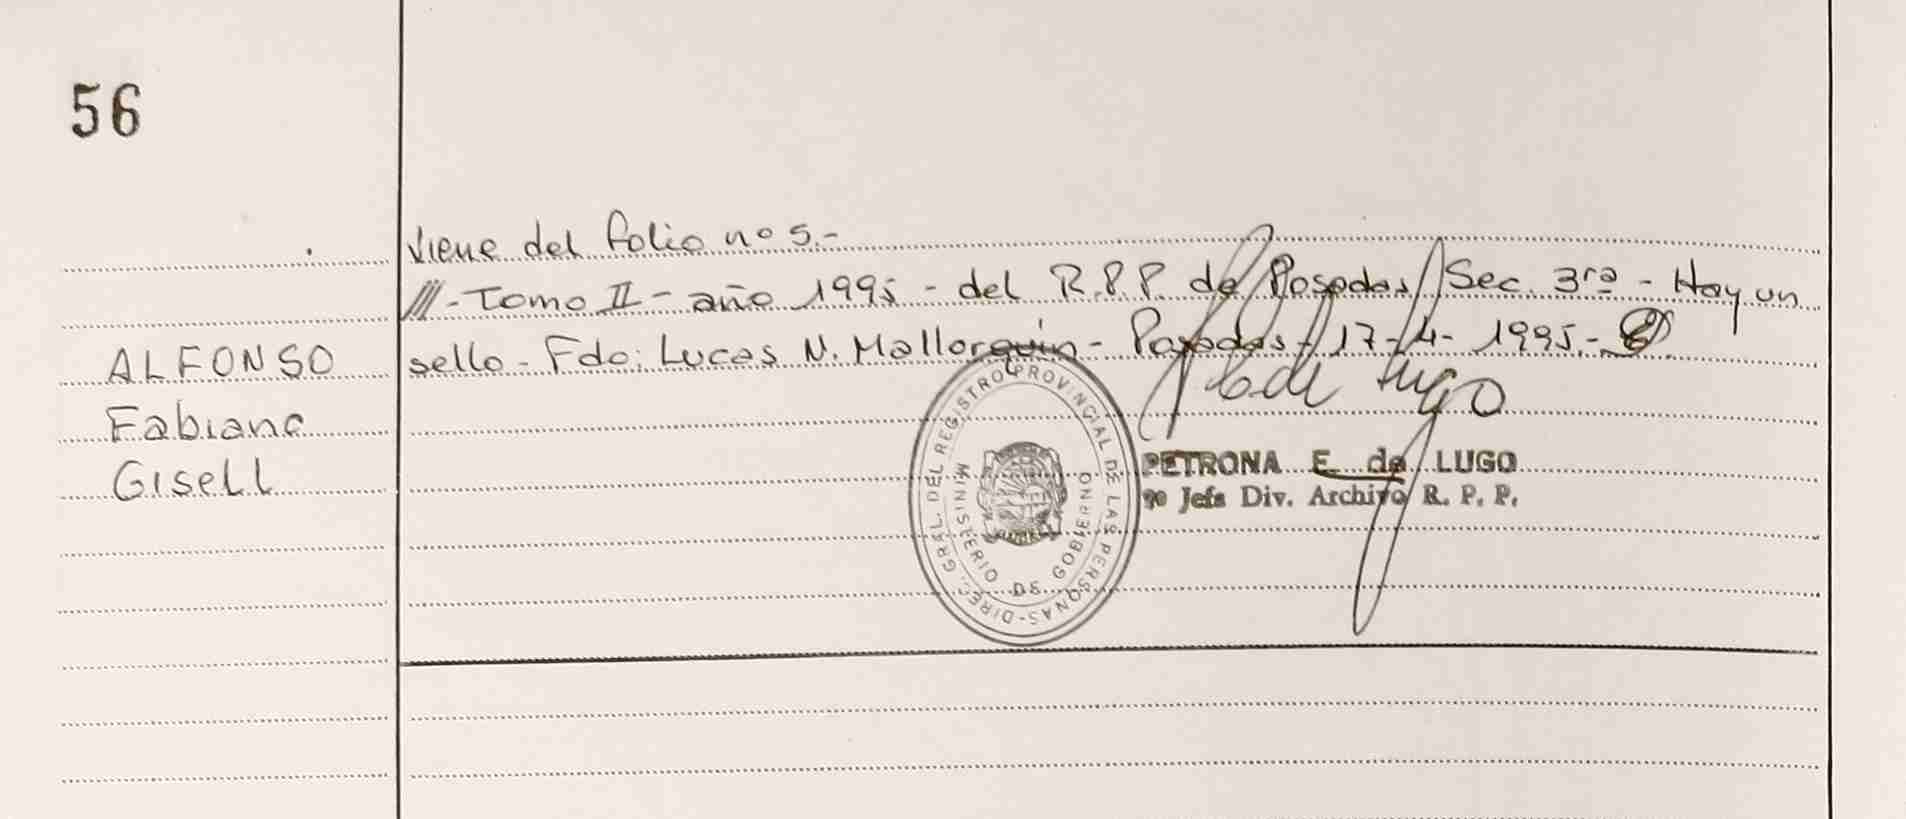 56
Viene del folio nº 5.-
///-Tomo II - año 1995 - del R.P.P. de Posadas/ Sec. 3ra - Hay un
sello - Fdo: Lucas N. Mallorquin - Posadas - 17-4-1995.-
ALFONSO
Fabiana
Gisell
de Lugo
PETRONA E. de LUGO
Jefa Div. Archivo R. P. P.
DIREC. GRAL. DEL REGISTRO PROVINCIAL DE LAS PERSONAS-
MINISTERIO DE GOBIERNO